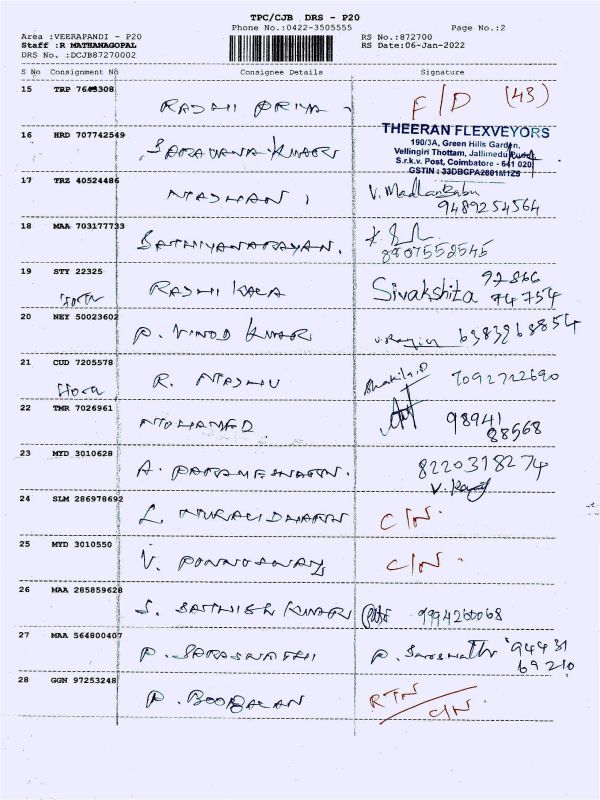 TPC/CJB DRS - P20
Phone No.:0422-3505555 Page No.:2
Area :VEERAPANDI - P20 RS No.:872700
Staff :R MATHANAGOPAL RS Date:06-Jan-2022
DRS No. :DCJB87270002
S No Consignment No Consignee Details Signature
15 TRP 7648308 RASHMI PRIYA F/D (43)
16 HRD 707742549 SARAVANA KUMAR THEERAN FLEXVEYORS
190/3A, Green Hills Garden,
Vellingiri Thottam, Jallimedu
S.r.k.v. Post, Coimbatore - 641 020
GSTIN : 33DBCPA2601M1Z5
17 TRZ 40524486 V. MadhanBabu
9489254564
18 MAA 703177733 SATHIYANARAYAN.
8907558545
19 STY 22325 RASHMI KALA Sivakshita 92866
74754
20 NEY 50023602 P. VINOD KUMAR 6383968854
21 CUD 7205578 R. Shakila.D 7092722690
22 TMR 7026961 MOHAMED. 98941
88568
23 MYD 3010628 A. PARAMESWARN. 8220318274
24 SLM 286978692 L. MURALIDHARN C/N.
25 MYD 3010550 V. PONNUSWAMY C/N.
26 MAA 285859628 S. SATHISH KUMAR 9994260068
27 MAA 564800407 P. SARASWATHI P. Saraswathi 94431
69210
28 GGN 97253248 P. BOOBALAN RTN
C/N.